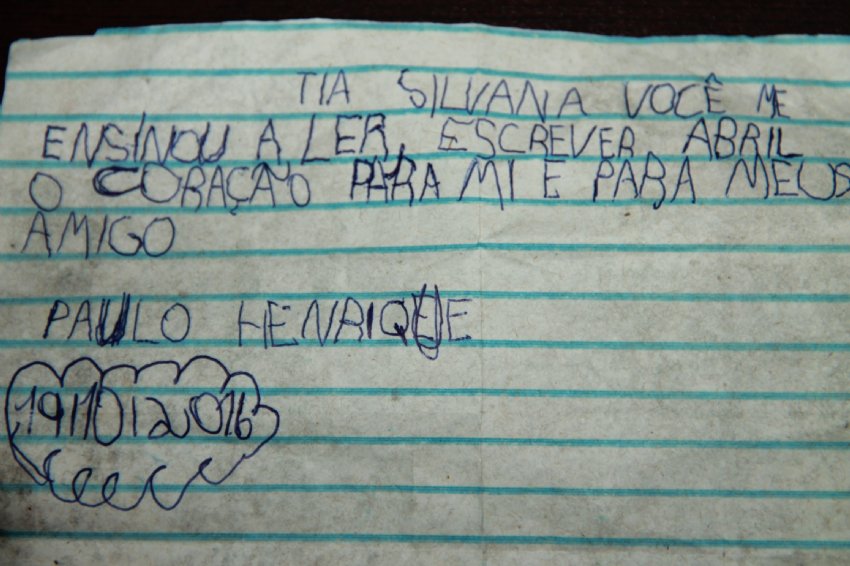 TIA SILVANA VOCÊ ME
ENSINOU A LER, ESCREVER, ABRIL
O CORAÇÃO PARA MI E PARA MEUS
AMIGO
PAULO HENRIQUE
19/10/2016